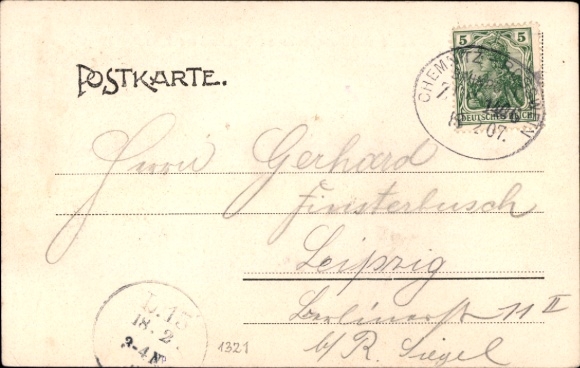 POSTKARTE.
5 5
DEUTSCHES REICH
CHEMNITZ
2.07.
Herrn Gerhard
Finsterbusch
Leipzig
Berlinerstr 11 II
b/R. Siegel
L.13
18. 2.
3-4 N
1321